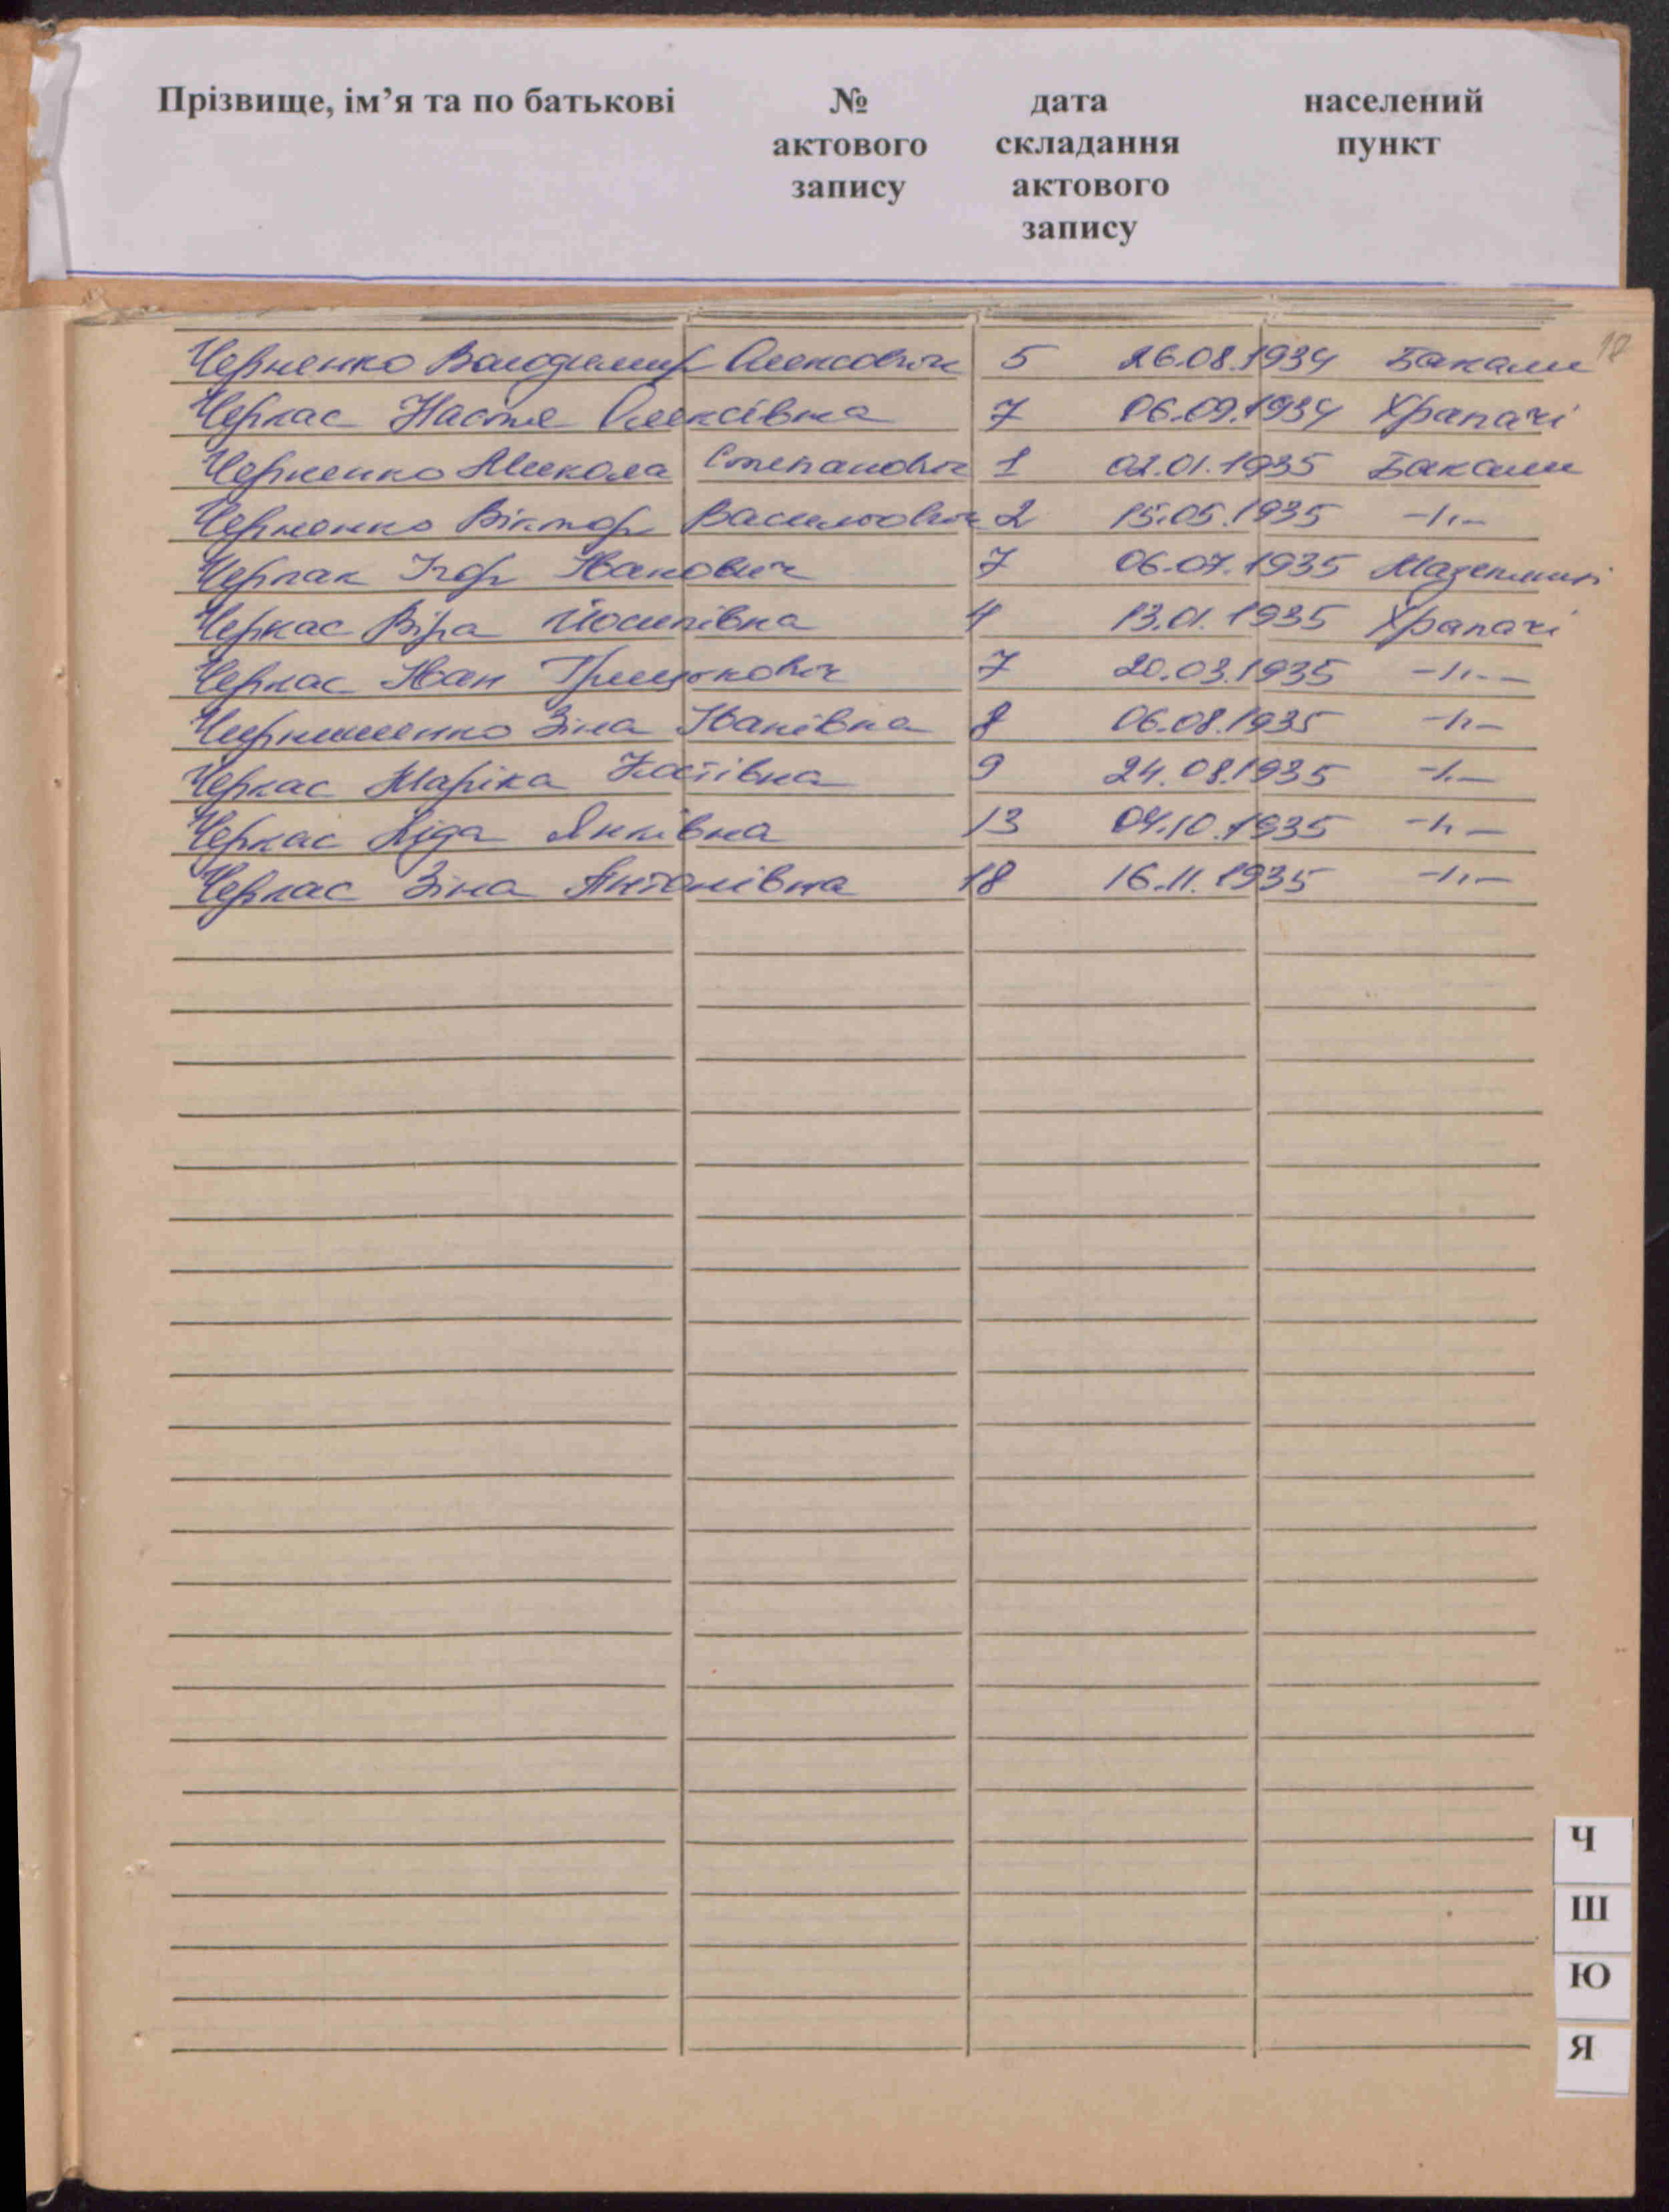 Прізвище, ім’я та по батькові № дата населений
актового складання пункт
запису актового
запису
18
Черненко Володимир Олексович 5 26.08.1934 Бакали
Черкас Настя Олексівна 7 06.09.1934 Храпачі
Черненко Микола Степанович 1 02.01.1935 Бакали
Черненко Віктор Васильович 2 15.05.1935 -//-
Черпак Ігор Іванович 7 06.07.1935 Мазепинці
Черкас Віра Йосипівна 4 13.01.1935 Храпачі
Черкас Іван Грицькович 7 20.03.1935 -//-
Чернишенко Зіна Іванівна 8 06.08.1935 -//-
Черкас Маріка 9 24.08.1935 -//-
Черкас Ліда Яківна 13 04.10.1935 -//-
Черкас Зіна Антонівна 18 16.11.1935 -//-
Ч
Ш
Ю
Я